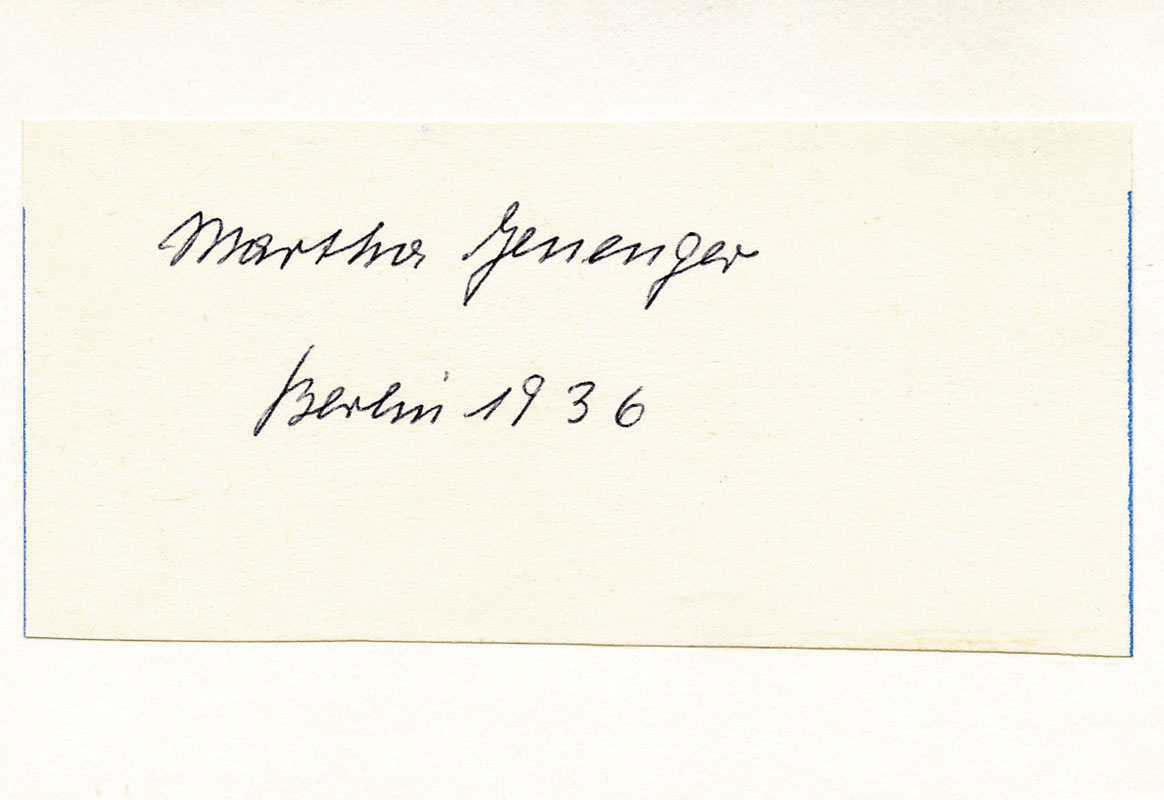 Martha Genenger
Berlin 1936